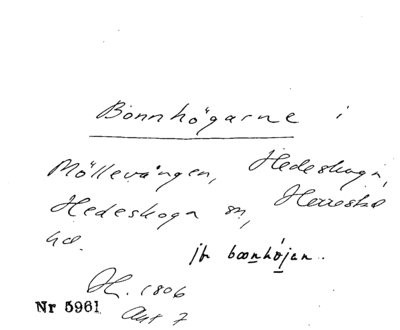 Bönnhögarne i
Möllevången, Hedeskoga,
Hedeskoga sn, Herrestad
hd.
jfr bœnhøjan.
H. 1806
Akt 7
Nr 5961